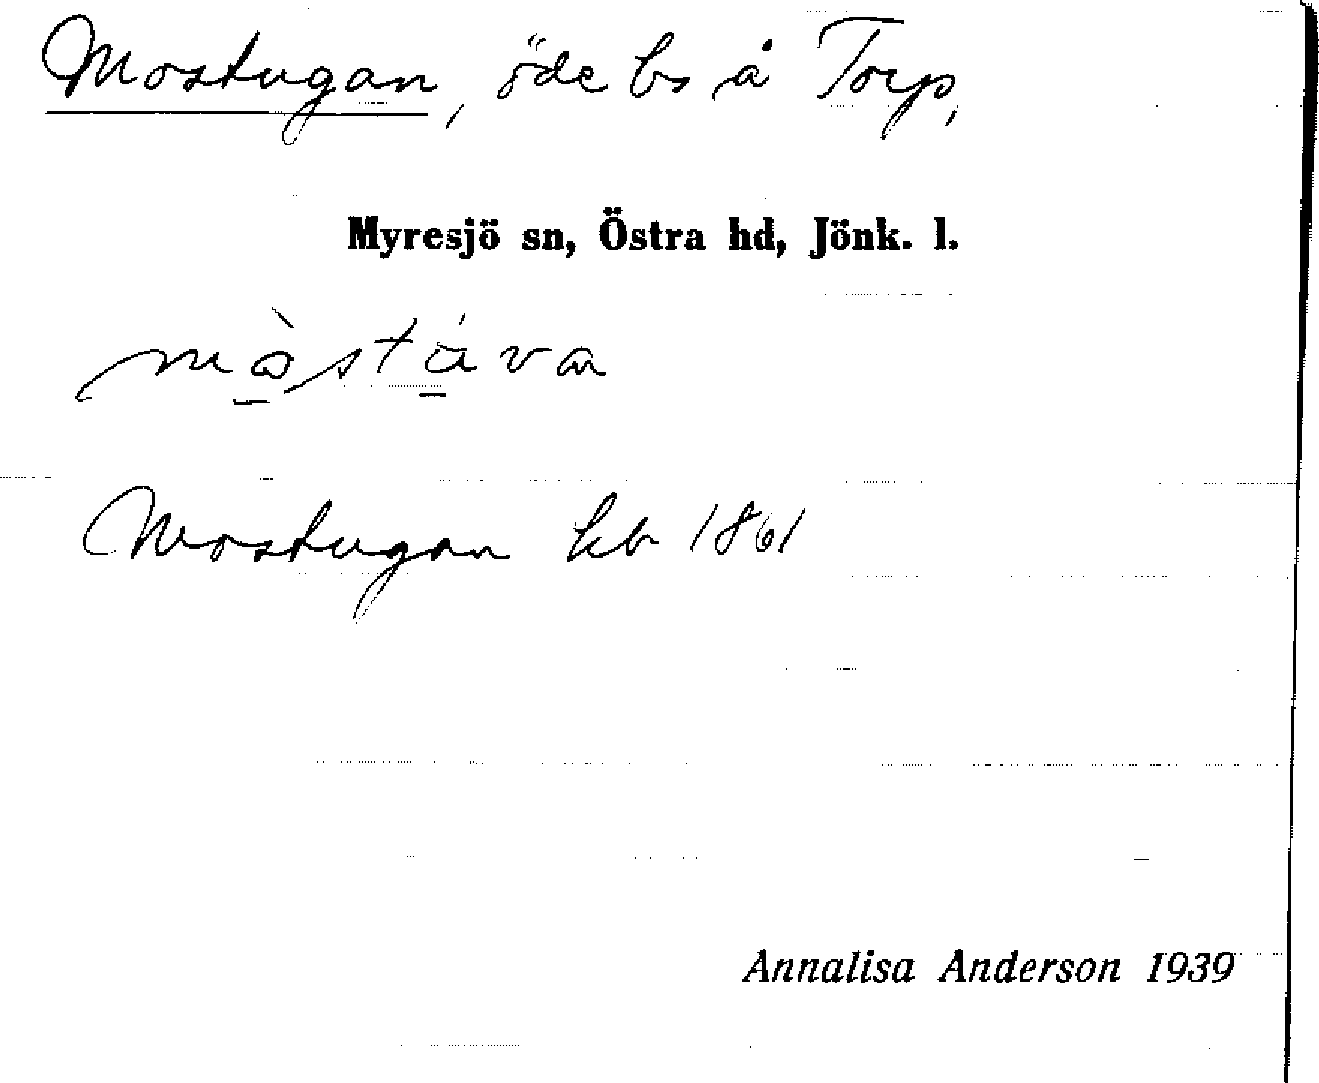 Mostugan, öde bs å Torp,
Myresjö sn, Östra hd, Jönk. l.
Mostugan kb 1861
Annalisa Anderson 1939